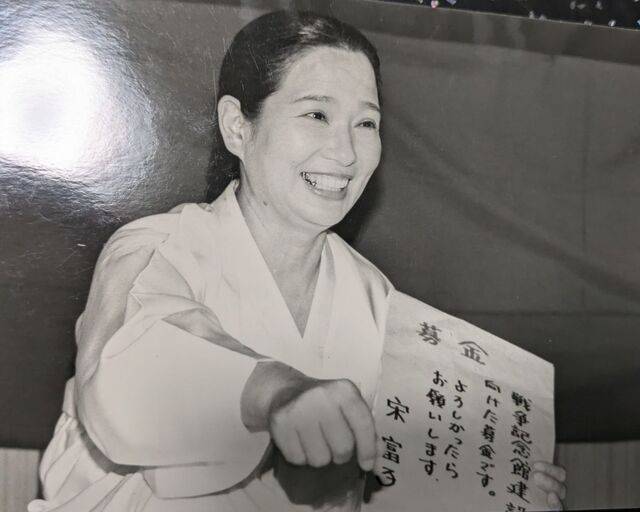 募金
戦争記念館建設
向けた募金です。
よろしかったら
お願いします。
宋富子